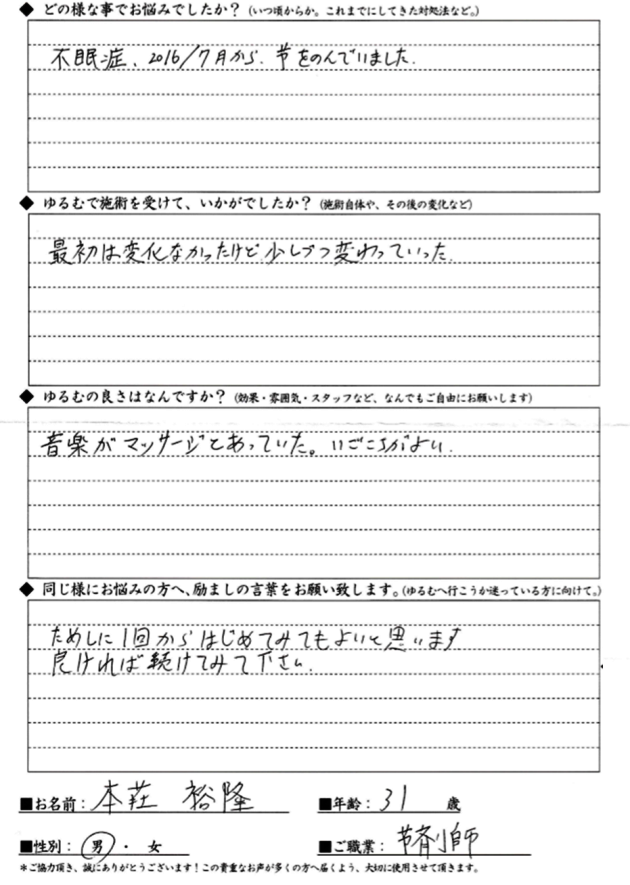 ◆ どの様な事でお悩みでしたか？（いつ頃からか。これまでにしてきた対処法など。）
不眠症、2016/7月から、薬をのんでいました.
◆ ゆるむで施術を受けて、いかがでしたか？（施術自体や、その後の変化など）
最初は変化なかったけど少しづつ変わっていった.
◆ ゆるむの良さはなんですか？（効果・雰囲気・スタッフなど、なんでもご自由にお願いします）
音楽がマッサージとあっていた。いごこちがよい.
◆ 同じ様にお悩みの方へ、励ましの言葉をお願い致します。（ゆるむへ行こうか迷っている方に向けて。）
ためしに1回からはじめてみてもよいと思います
良ければ続けてみて下さい.
■お名前： 本荘 裕隆 ■年齢： 31 歳
■性別： 男 ・ 女 ■ご職業： 薬剤師
＊ご協力頂き、誠にありがとうございます！この貴重なお声が多くの方へ届くよう、大切に使用させて頂きます。